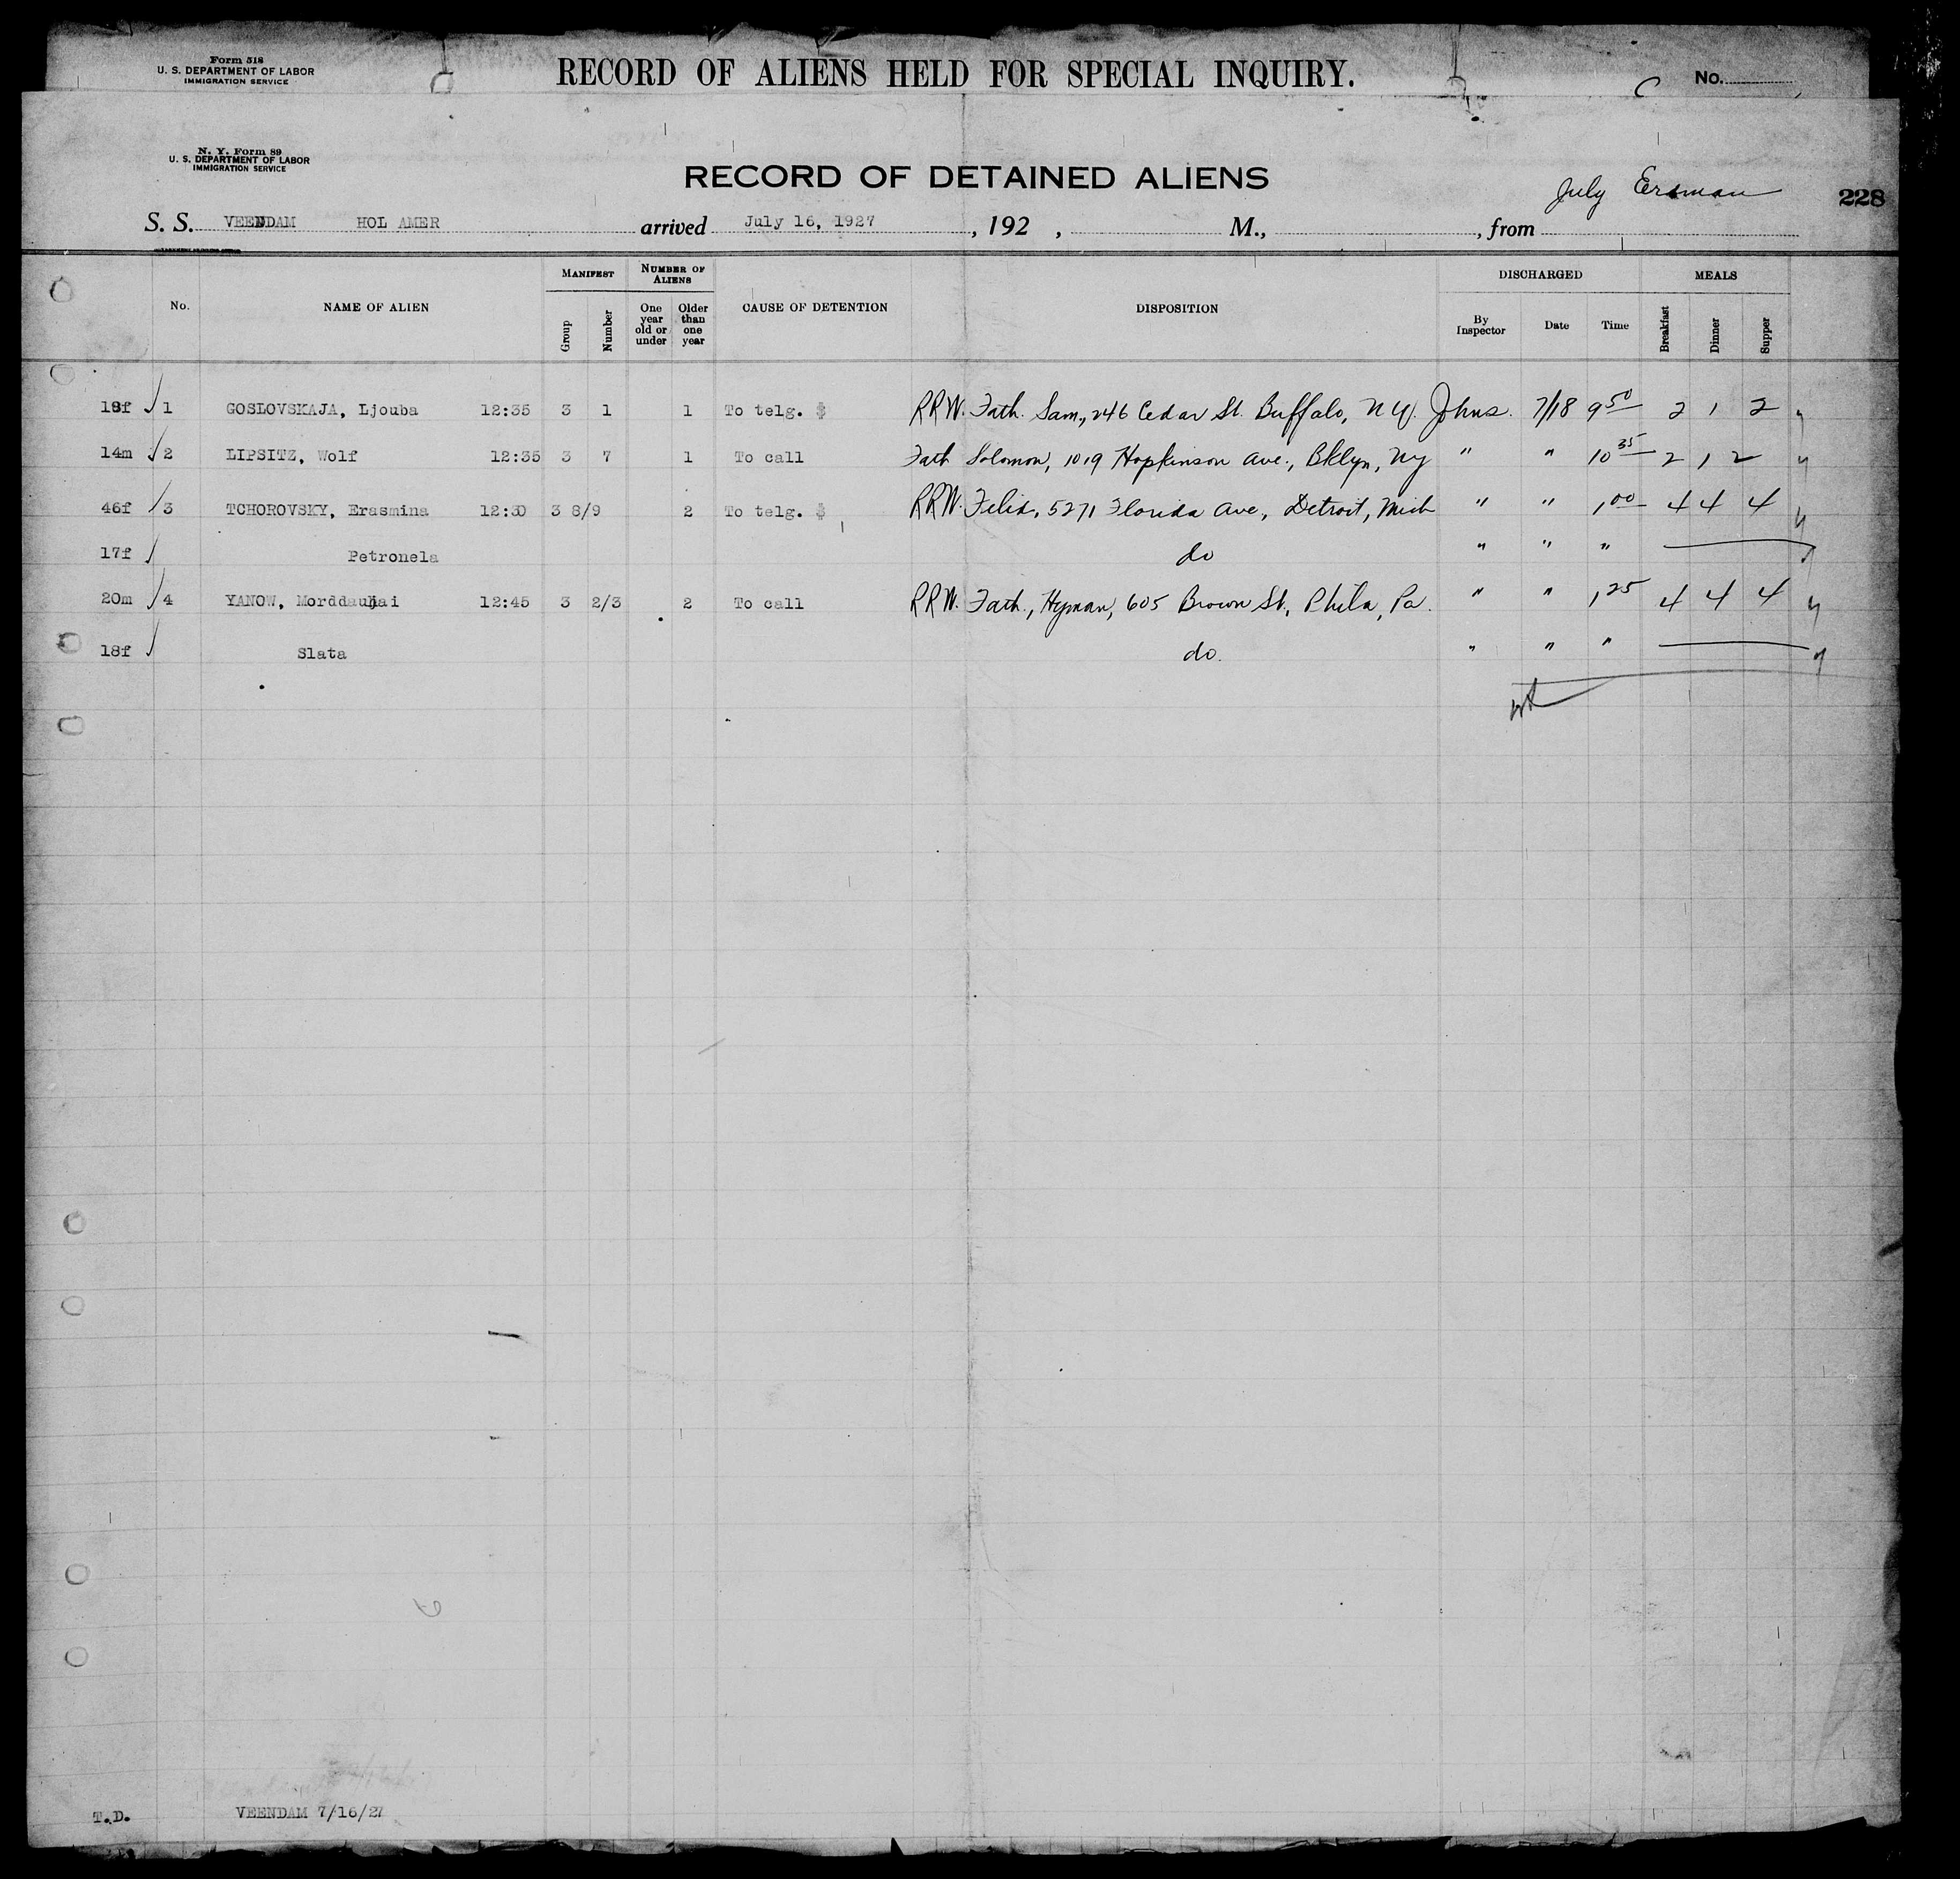 Form 518
U. S. DEPARTMENT OF LABOR
IMMIGRATION SERVICE
RECORD OF ALIENS HELD FOR SPECIAL INQUIRY.
No.
N. Y. Form 89
U. S. DEPARTMENT OF LABOR
IMMIGRATION SERVICE
RECORD OF DETAINED ALIENS
July
228
S. S. VEENDAM HOL AMER arrived July 16, 1927, 192 , M., , from
No. NAME OF ALIEN MANIFEST Group Number NUMBER OF ALIENS One year old or under Older than one year CAUSE OF DETENTION DISPOSITION DISCHARGED By Inspector Date Time MEALS Breakfast Dinner Supper
1 GOSLOVSKAJA, Ljouba 12:35 3 1 1 To telg. $ RRW. Fath. Sam, 246 Cedar St. Buffalo, N.Y. Johns. 7/18 9 50 2 1 2
14m 2 LIPSITZ, Wolf 12:35 3 7 1 To call Fath Solomon, 1019 Hopkinson Ave., Bklyn, Ny " " 10 35 2 1 2
46f 3 TCHOROVSKY, Erasmina 12:30 3 8/9 2 To telg. $ RRW. Felix, 5271 Florida Ave, Detroit, Mich " " 1 00 4 4 4
17f Petronela do " " "
20m 4 YANOW, 12:45 3 2/3 2 To call RRW. Fath., Hyman, 605 Brown St, Phila, Pa. " " 1 25 4 4 4
18f Slata do. " " "
T.D. VEENDAM 7/16/27